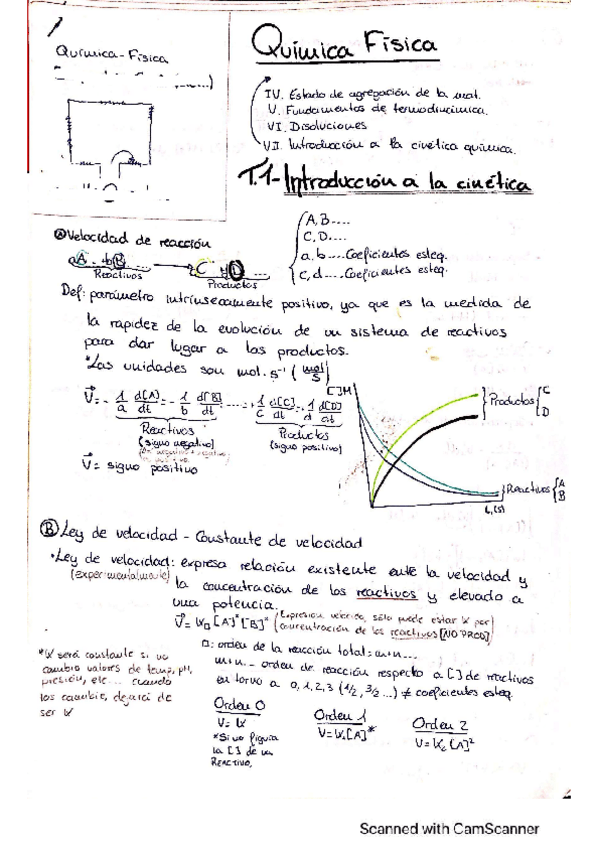 Química-Física
Química Física
IV. Estado de agregación de la mat.
V. Fundamentos de termodinámica.
VI. Disoluciones
VII. Introducción a la cinética química.
T.1- Introducción a la cinética
Ⓐ Velocidad de reacción
A, B....
C, D....
a, b.... Coeficientes esteq.
c, d.... Coeficientes esteq.
aA + bB ... → C + D ...
Reactivos
Productos
Def: parámetro intrínsecamente positivo, ya que es la medida de
la rapidez de la evolución de un sistema de reactivos
para dar lugar a los productos.
*Las unidades son mol·s⁻¹ (mol/s)
V = -1/a d[A]/dt = -1/b d[B]/dt = ... = 1/c d[C]/dt = 1/d d[D]/dt
Reactivos
(signo negativo)
Productos
(signo positivo)
V = signo positivo
[ ]M
Productos C D
Reactivos A B
t,(s)
Ⓑ Ley de velocidad - Constante de velocidad
*Ley de velocidad: expresa relación existente entre la velocidad y
(experimentalmente)
la concentración de los reactivos y elevado a
una potencia.
(Expresión velocidad, sólo puede estar K por
concentración de los reactivos [NO PROD]
n: orden de la reacción total = m+n...
m, n.. - orden de reacción respecto a [ ] de reactivos
en torno a 0, 1, 2, 3 (1/2, 3/2 ...) ≠ coeficientes esteq.
*K será constante si no
cambio valores de temp, pH,
presión, etc... cuando
los cambie, dejará de
ser K
Orden 0
V = K
*Si no figura
la [ ] de un
REACTIVO,
Orden 1
V = K[A]*
Orden 2
V = K[A]²
Scanned with CamScanner